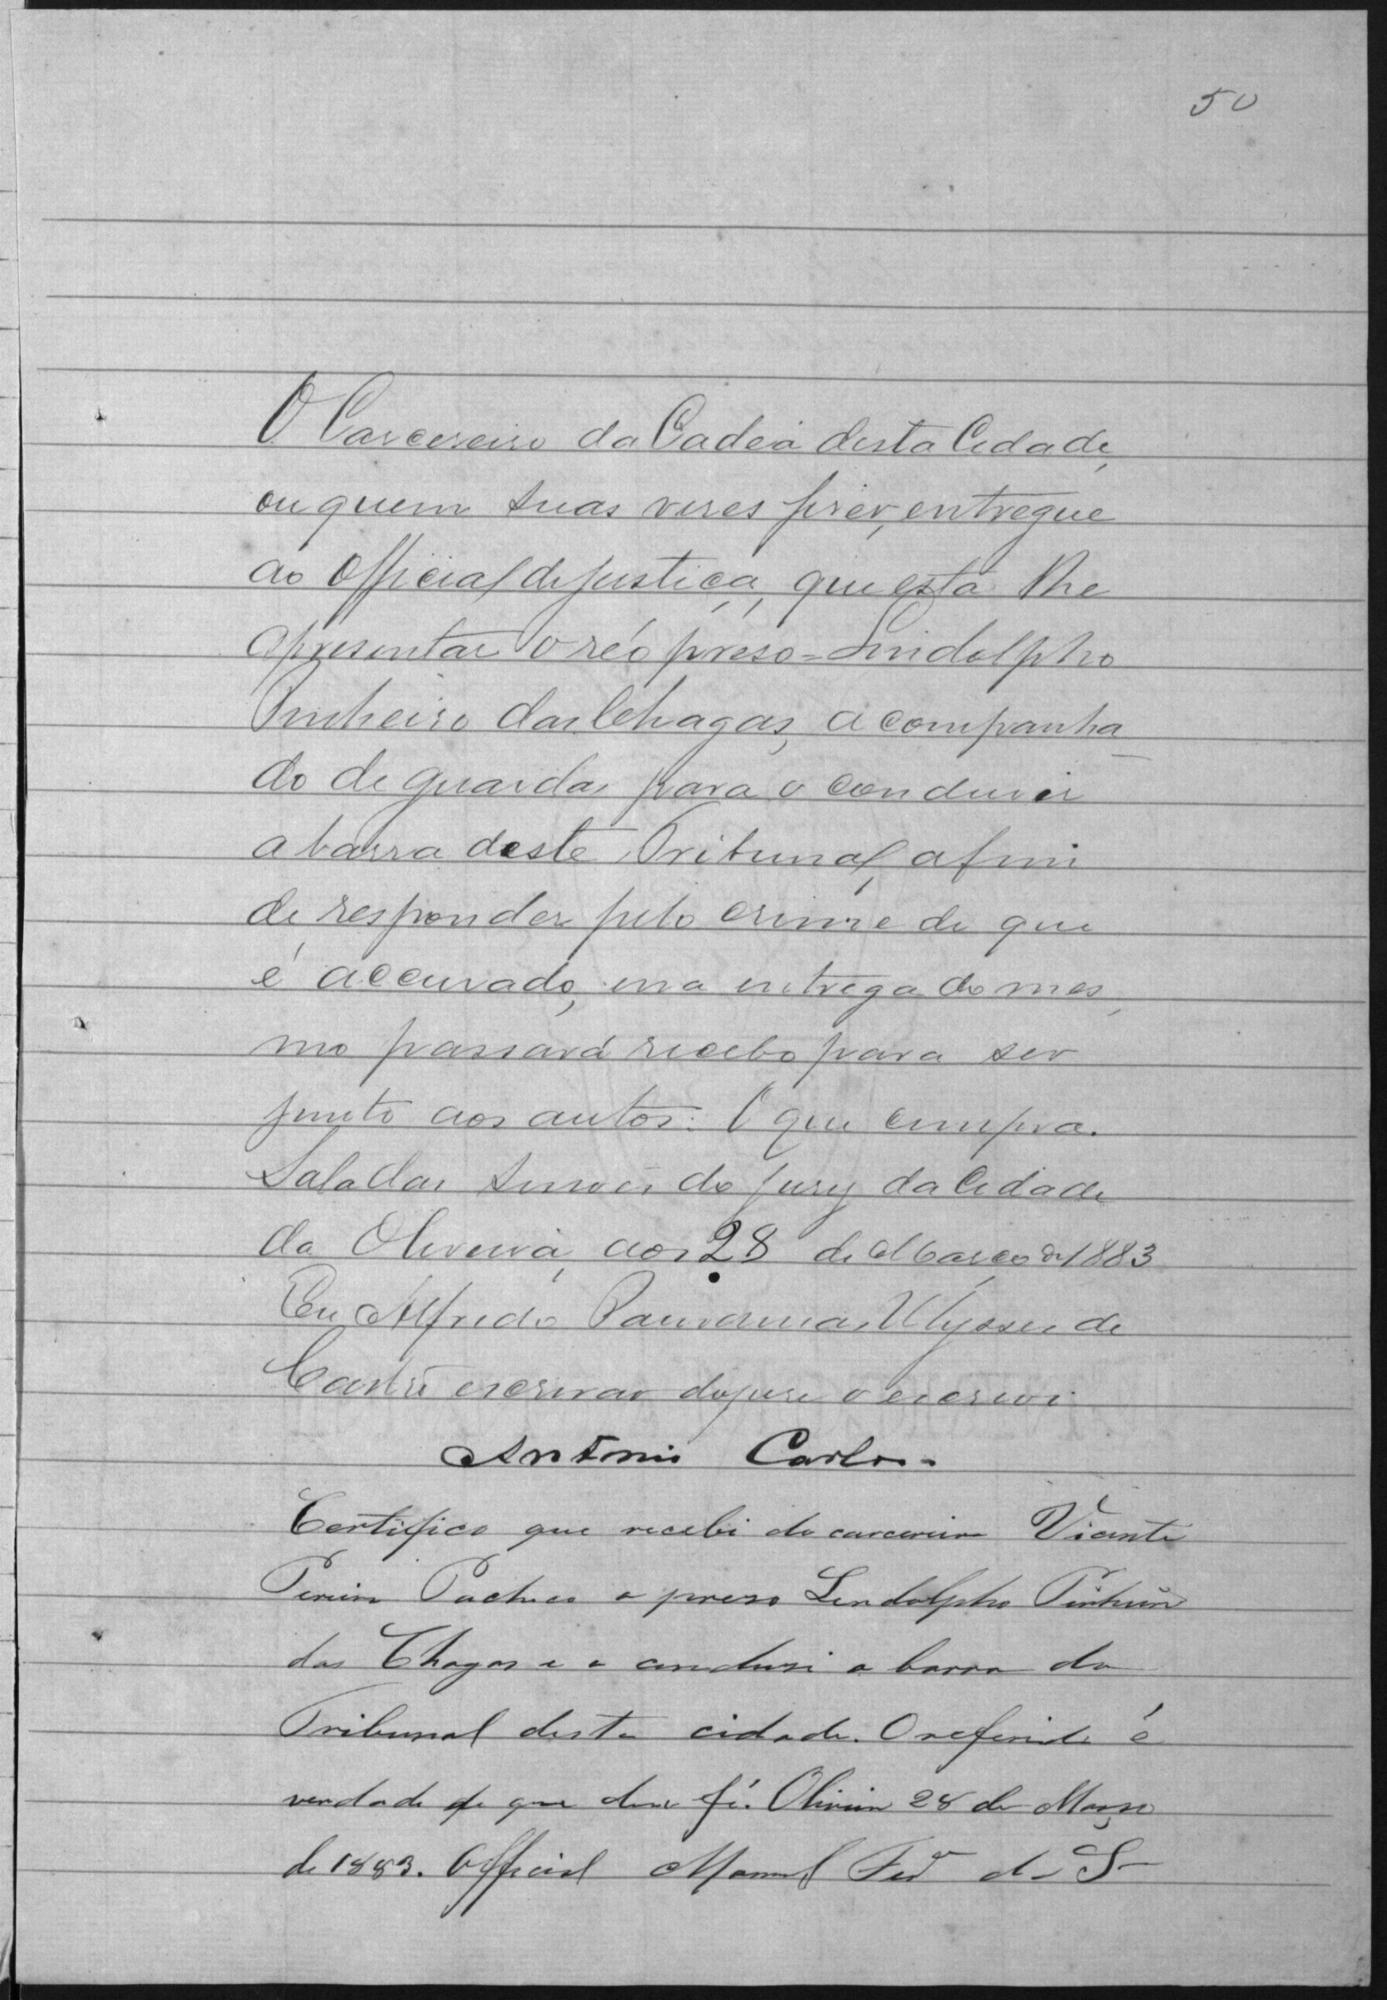 50
O Carcereiro da Cadeia desta Cidade,
ou quem suas veses fizer, entregue
ao Official de justiça, que esta lhe
apresentar o réo preso = Lindolpho
Pinheiro das Chagas, acompanha
do de guardas para o conduzir
a barra deste Tribunal, afim
de responder pelo crime de que
é accusado, e na entrega do mes,
mo passará recebo para ser
junto aos autos. O que cumpra.
Sala das Sessões do jury da Cidade
da Oliveira, aos 28 de Março de 1883
Eu Alfredo Ulysses de
Castro escrivão do jury o escrevi
Antonio Carlos.
Certifico que recebi do carcereiro Vicente
Pereira Pacheco o preso Lindolpho Pinheiro
das Chagas e o condusi a barra do
Tribunal desta cidade. O referido é
verdade de que dou fé. Oliveira 28 de Março
de 1883. Official Manoel Fed da S